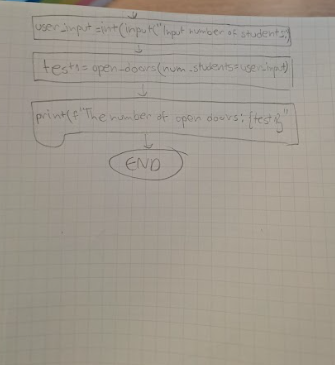 user_input=int(input("Input number of students:
tests=open-doors(num_students=userinput)
print(f"The number of open doors: {tests}"
END